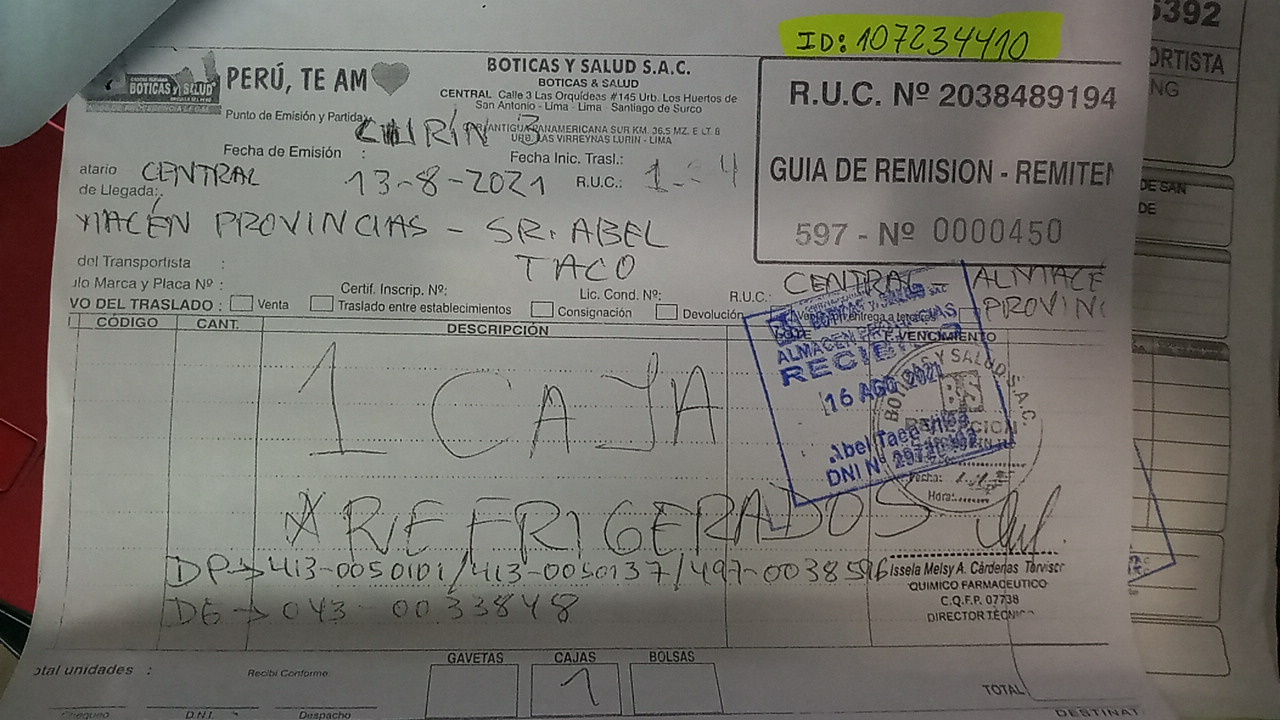 ID: 107234410
5392
ORTISTA
NG
BOTICAS Y SALUD
PERÚ, TE AM
BOTICAS Y SALUD S.A.C.
BOTICAS & SALUD
CENTRAL Calle 3 Las Orquídeas #145 Urb. Los Huertos de
San Antonio - Lima - Lima - Santiago de Surco
ANTIGUA PANAMERICANA SUR KM. 36.5 MZ. E LT. 8
URB. LAS VIRREYNAS LURIN - LIMA
R.U.C. Nº 2038489194
GUIA DE REMISION - REMITEN
597 - Nº 0000450
Punto de Emisión y Partida
LURÍN 3
Fecha de Emisión : 13-8-2021
Fecha Inic. Trasl.:
atario CENTRAL
R.U.C.:
de Llegada:
MACÉN PROVINCIAS - SR. ABEL
TACO
del Transportista :
lo Marca y Placa Nº :
Certif. Inscrip. Nº:
Lic. Cond. Nº:
R.U.C.:
CENTRAL ALMACE
PROVINC
VO DEL TRASLADO : Venta Traslado entre establecimientos Consignación Devolución
CÓDIGO CANT. DESCRIPCIÓN VENCIMIENTO
DE SAN
DE
ALMACEN PROVINCIAS
RECIBIDO
16 AGO 2021
Abel Taco
DNI Nº
BOTICAS Y SALUD S.A.C.
BS
RECEPCION
Fecha:
Hora:
1 CAJA
* REFRIGERADOS
DP→413-0050101/413-0050137/497-0038596
DE→043-0033848
Issela Melsy A. Cárdenas
QUIMICO FARMACEUTICO
C.Q.F.P. 07738
DIRECTOR TÉCNICO
otal unidades :
Recibí Conforme:
GAVETAS CAJAS BOLSAS
1
TOTAL
Chequeo D.N.I. Despacho
DESTINAT